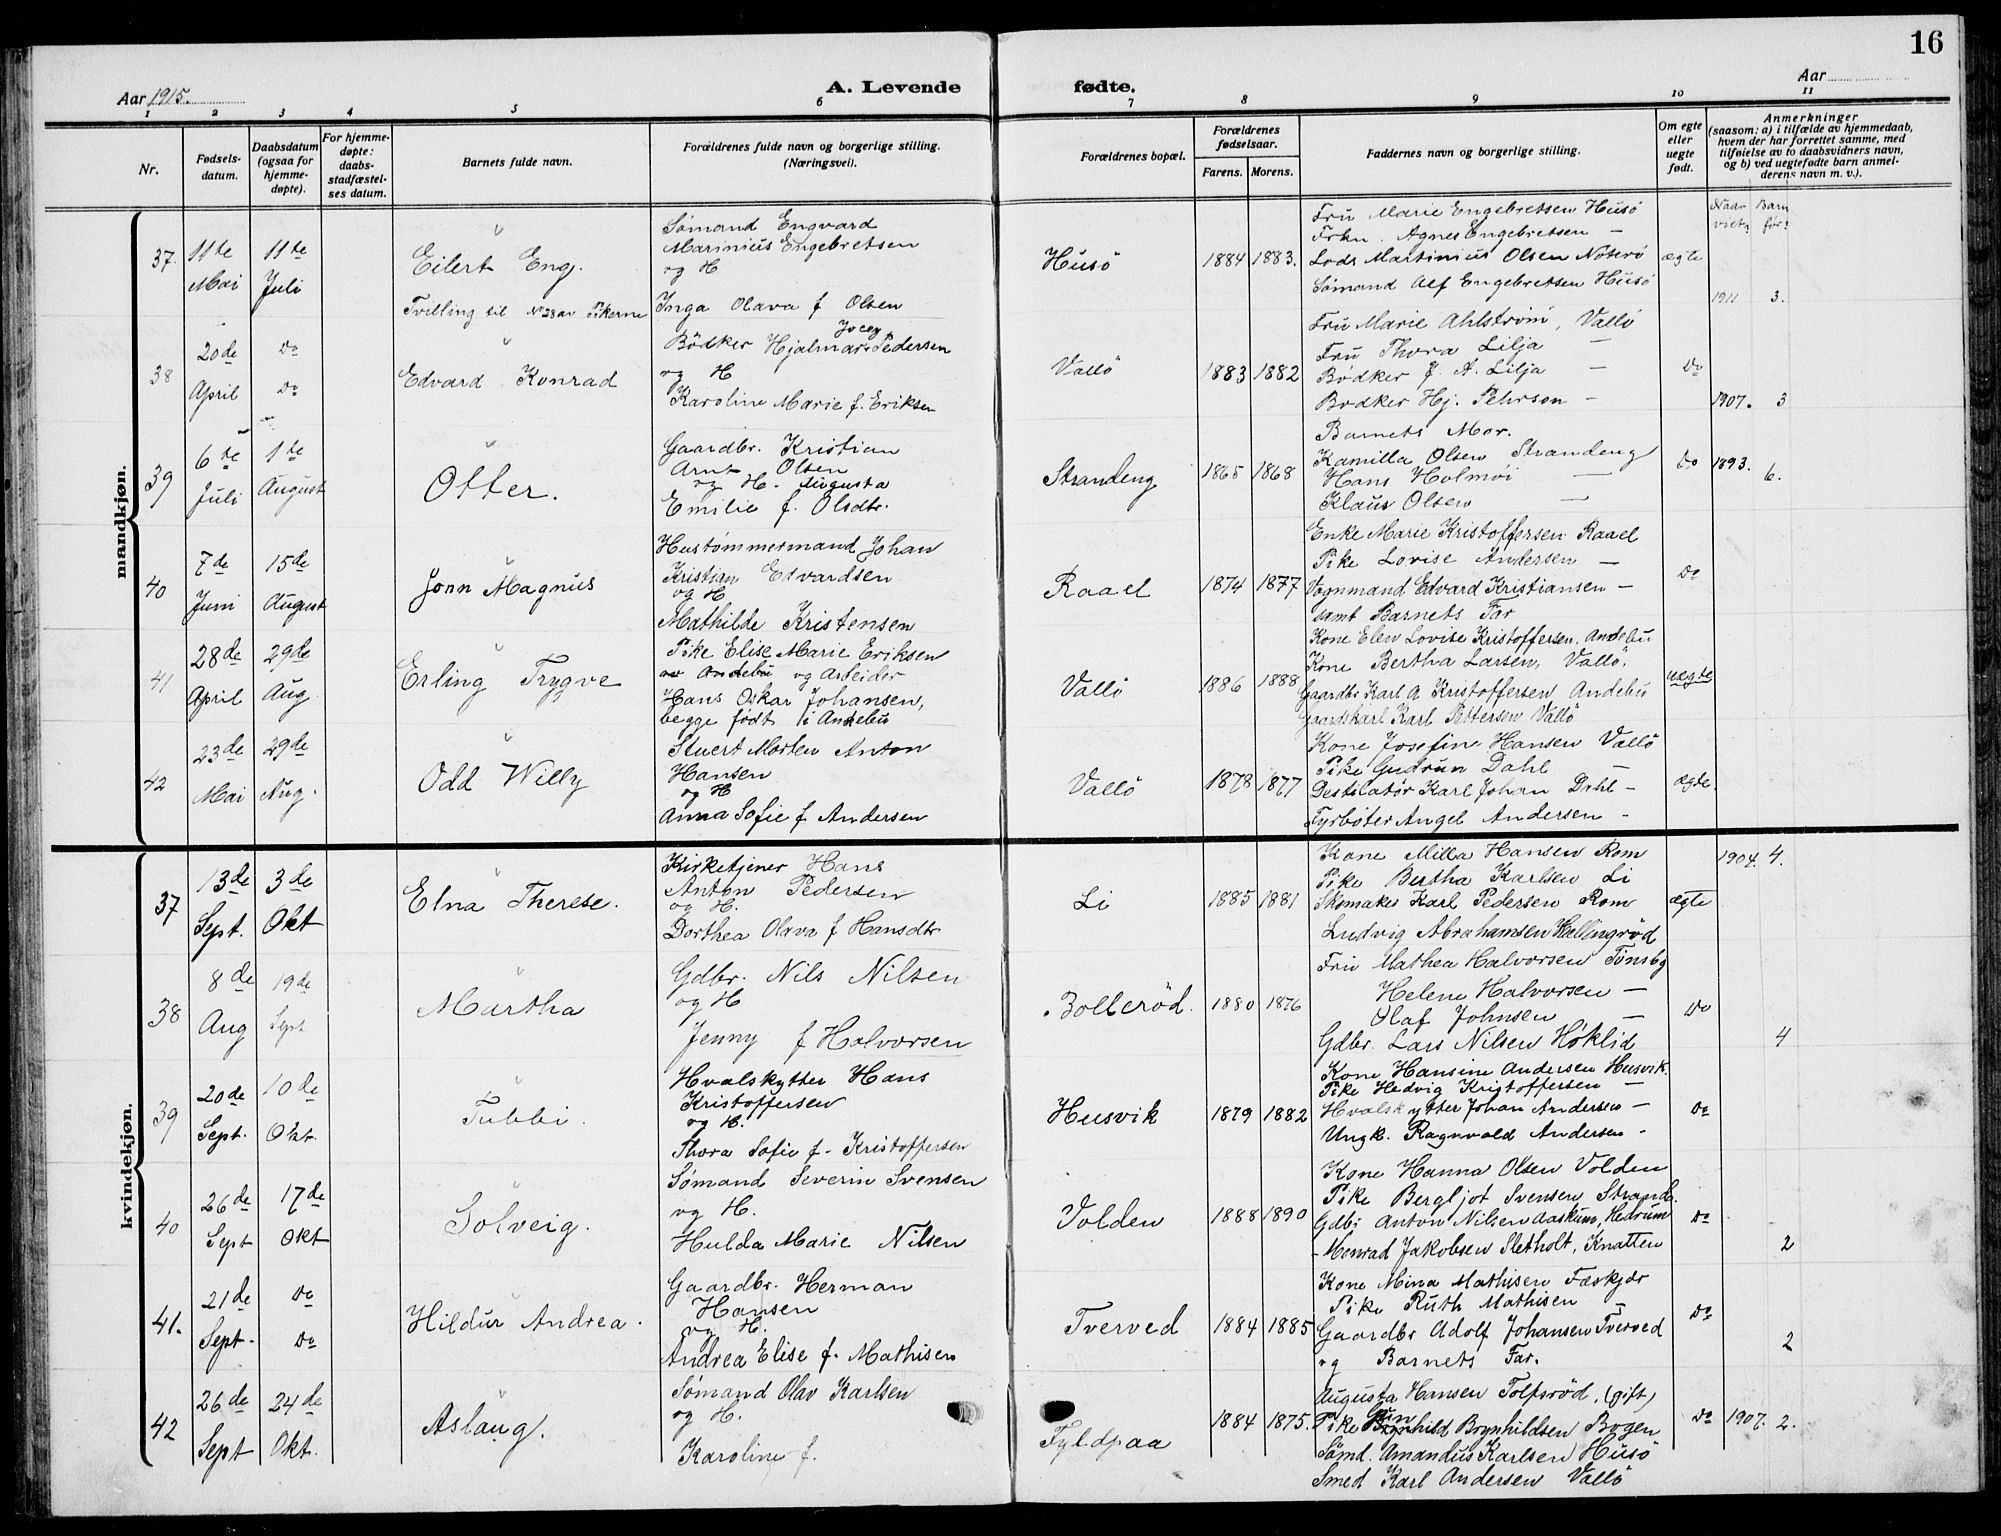 16
Aar 1915.
A. Levende fødte.
Aar
1 2 3 4 5 6 7 8 9 10 11
Nr.
Fødsels-
datum.
Daabsdatum
(ogsaa for
hjemme-
døpte).
For hjemme-
døpte:
daabs-
stadfæstel-
ses datum.
Barnets fulde navn.
Forældrenes fulde navn og borgerlige stilling.
(Næringsvei).
Forældrenes bopæl.
Forældrenes
fødselsaar.
Farens. Morens.
Faddernes navn og borgerlige stilling.
Om egte
eller
uegte
født.
Anmerkninger
(saasom: a) i tilfælde av hjemmedaab,
hvem der har forrettet samme, med
tilføielse av to daabsvidners navn,
og b) ved uegtefødte barn anmel-
derens navn m. v.).
Naar Barn
viet? før?
mandkjøn.
37.
11te
Mai
11te
Juli
Eilert Eng.
Tvilling til No 28 av Pikerne
Sømand Engvard
Marinius Engebretsen
og H
Inga Olava f Olsen
Husö
1884 1883.
Fru Marie Engebretsen Husö
Frkn. Agnes Engebretsen —
Lods Martinius Olsen Nöterö
Sømand Alf Engebretsen Husö
ægte
1911 3.
38
20de
April
Do
Do
Edvard Konrad
Bödker Hjalmar Pedersen
og H
Karoline Marie f. Eriksen
Vallö
1883 1882
Fru Marie Ahlström, Vallö
Fru Thora Lilja —
Bödker J. A. Lilja —
Bödker Hj. Pehrson —
Do
1907. 3
39
6te
Juli
1te
August
Otter.
Gaardbr. Kristian
Arnt Olsen
og H. Augusta
Emilie f. Olsdtr.
Strandeng
1865 1868
Barnets Mor.
Kamilla Olsen Strandeng
Hans Holmöi —
Klaus Olsen —
Do
1893. 6.
40
7de
Juni
15de
August
Jonn Magnus
Hustømmermand Johan
Kristian Edvardsen
og H
Mathilde Kristensen
Raael
1874 1877
Enke Marie Kristoffersen Raael
Pike Lovise Andersen —
Vognmand Edvard Kristiansen —
samt Barnets Far
Do
41
28de
April
29de
Aug.
Erling Trygve
Pike Elise Marie Eriksen
av Andebu og Arbeider
Hans Oskar Johansen,
begge født i Andebu
Vallö
1886 1888
Kone Elen Lovise Kristoffersen, Andebu
Kone Bertha Larsen, Vallö.
Gaardbr Karl A Kristoffersen Andebu
Gaardskarl Karl Pettersen Vallö
uægte
42
23de
Mai
29de
Aug.
Odd Willy
Stuert Morten Anton
Hansen
og H
Anna Sofie f Andersen
Vallö
1878 1877
Kone Josefine Hansen Vallö
Pike Gudrun Dahl —
Destilatør Karl Johan Dahl —
Fyrböter Angel Andersen —
ægte.
kvindekjøn.
37
13de
Sept.
3de
Okt
Elna Therese.
Kirketjener Hans
Anton Pedersen
og H.
Dorthea Olava f Hansdtr
Li
1885 1881
Kone Milla Hansen Rom
Pike Bertha Karlsen Li
Skomaker Karl Pedersen Rom
Ludvig Abrahamsen Hællingröd
ægte
1904. 4.
38
8de
Aug
19de
Sept
Martha
Gdbr. Nils Nilsen
og H
Jenny f Halvorsen
Bolleröd.
1880 1876
Fru Mathea Halvorsen Tönsbg
Helene Halvorsen —
Olaf Johnsen —
Gdbr. Lars Nilsen Höklid
Do
4
39
20de
Sept.
10de
Okt.
Tubbi.
Hvalskytter Hans
Kristoffersen
og H.
Thora Sofie f. Kristoffersen
Husvik
1879 1882
Kone Hansine Andersen Husvik.
Pike Hedvig Kristoffersen —
Hvalskytter Johan Andersen —
Ungk. Ragnvald Andersen —
Do
40
26de
Sept
17de
Okt
Solveig.
Sømand Severin Svensen
og H.
Hulda Marie Nilsen
Volden
1888 1890
Kone Hanna Olsen Volden
Pike Bergljot Svensen Strand.
Gdbr Anton Nilsen Aaskum, Hedrum
- Monrad Jakobsen Sletholt, Knatten
Do
2
41.
21de
Sept.
Do
Do
Hildur Andrea.
Gaardbr. Herman
Hansen
og H.
Andrea Elise f. Mathisen
Tverved
1884 1885
Kone Mina Mathisen Fæskjær
Pike Ruth Mathisen
Gaardbr Adolf Johansen Tverved
og Barnets Far.
Do
2
42
26de
Sept
24de
Okt.
Aslaug.
Sømand Olav Karlsen
og H.
Karoline f.
Fyldpaa
1884 1875.
Augusta Hansen Tolfsröd, (gift)
Pike Brynhildsen Bogen
Sömd. Amandus Karlsen Husö
Smed Karl Andersen Vallö
Do
1907. 2.